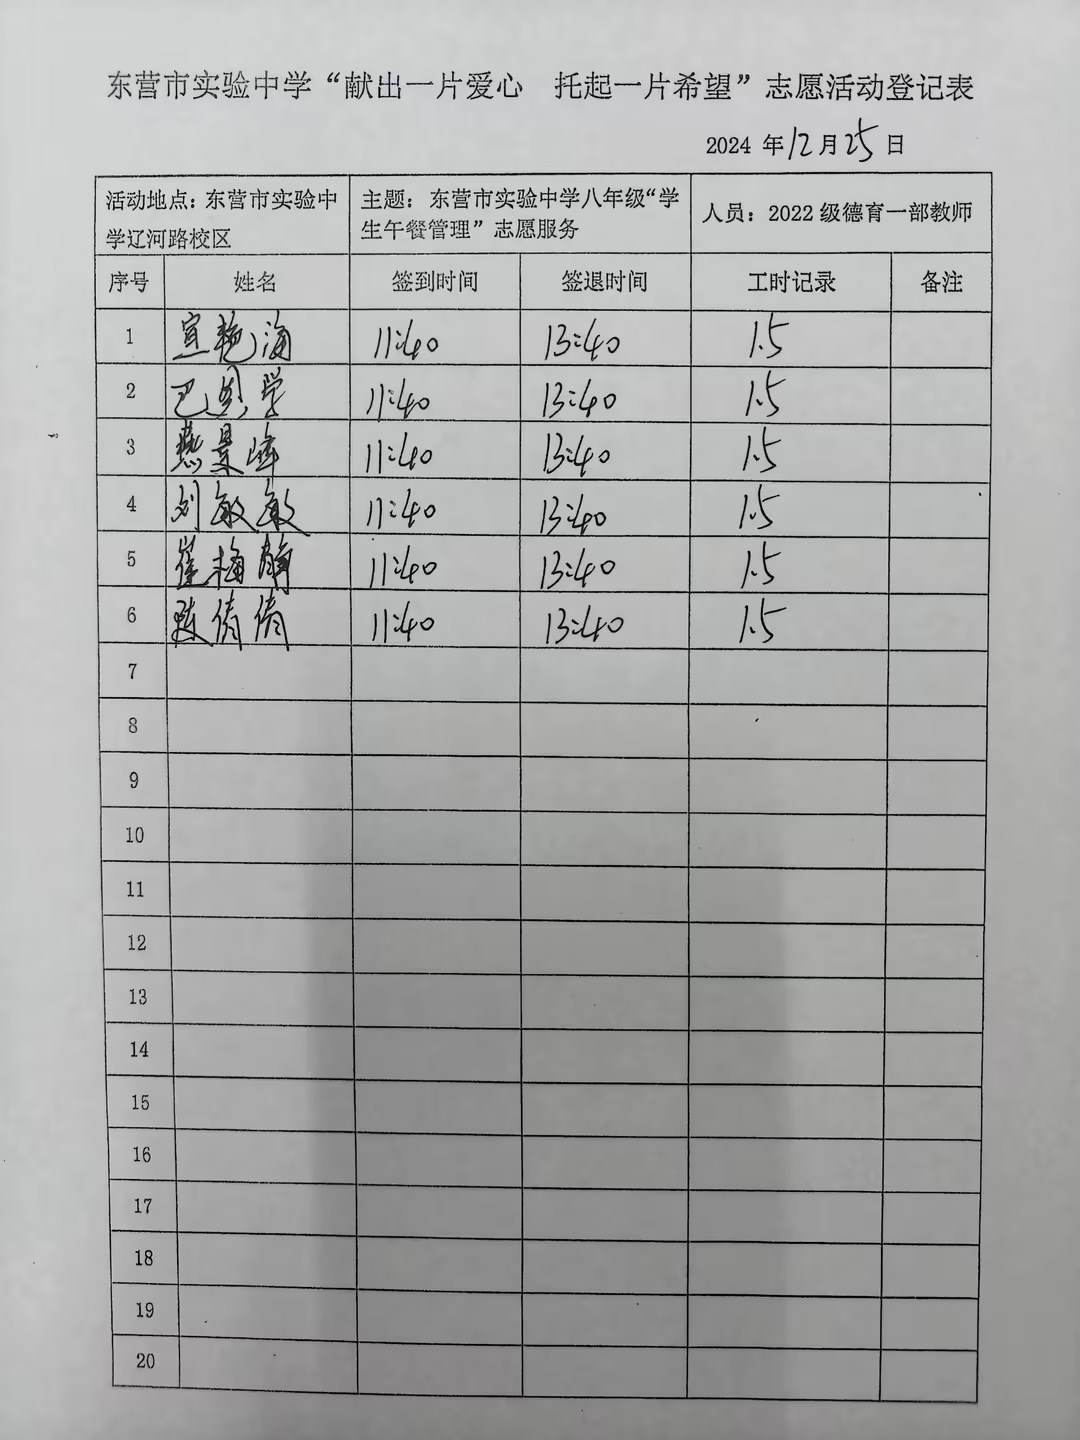 东营市实验中学“献出一片爱心 托起一片希望”志愿活动登记表
2024 年12月25日
活动地点：东营市实验中学辽河路校区 主题：东营市实验中学八年级“学生午餐管理”志愿服务 人员：2022 级德育一部教师
序号 姓名 签到时间 签退时间 工时记录 备注
1 宣艳海 11:40 13:40 1.5
2 巴 学 11:40 13:40 1.5
3 景峰 11:40 13:40 1.5
4 刘敏敏 11:40 13:40 1.5
5 崔梅 11:40 13:40 1.5
6 倩倩 11:40 13:40 1.5
7
8
9
10
11
12
13
14
15
16
17
18
19
20